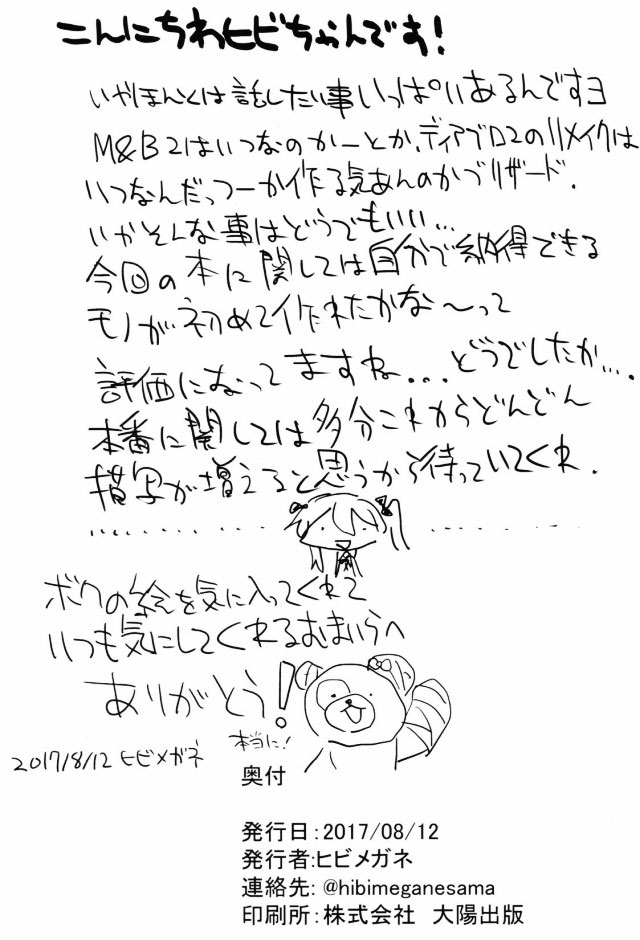 こんにちわヒビちゃんです!
いやほんとは話したい事いっぱいあるんですヨ
M&B2はいつなのかーとか、ディアブロ2のリメイクは
いつなんだっつーか作る気あんのかブリザード.
いかそんな事はどうでもいい...
今回の本に関しては自分で納得できる
モノが初めて作れたかな〜って
評価になってますね...どうでしたか...
本番に関しては多分これからどんどん
描写が増えると思うから待っていてくれ.
ボクの絵を気に入ってくれて
いつも気にしてくれるおまいらへ
ありがとう!
本当に!
2017/8/12 ヒビメガネ
奥付
発行日:2017/08/12
発行者:ヒビメガネ
連絡先: @hibimeganesama
印刷所:株式会社 大陽出版